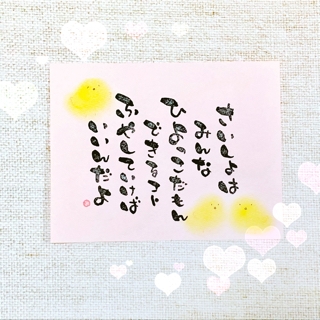 さいしょは
みんな
ひよっこだもん
できるコト
ふやしていけば
いいんだよ